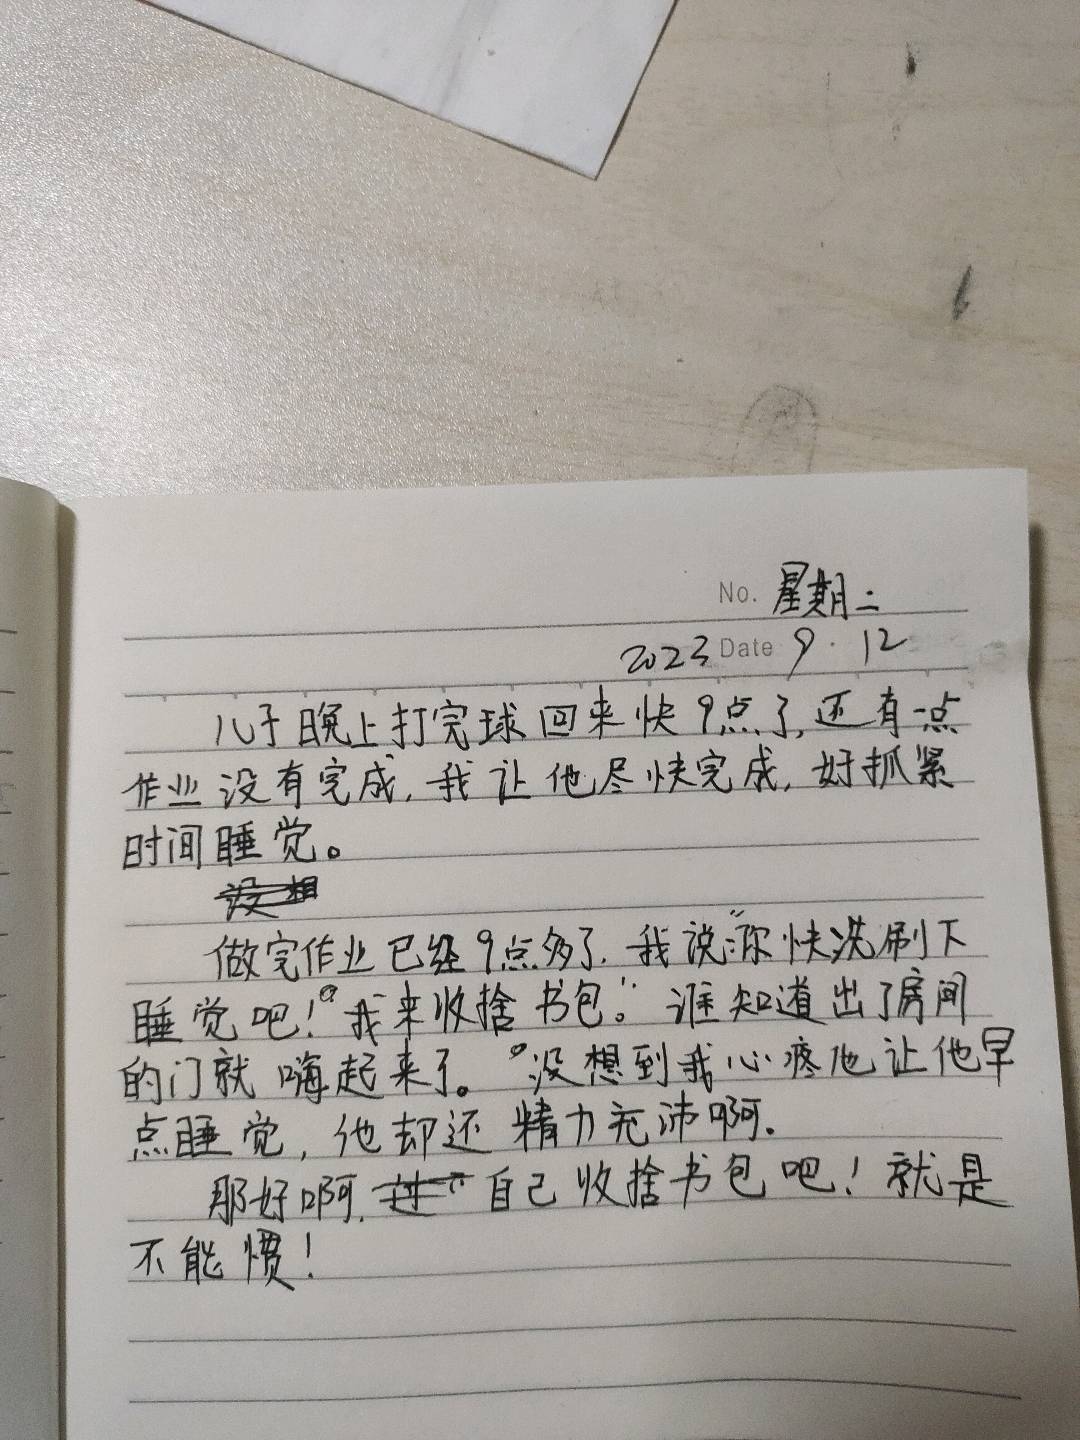 No. 星期二
2023 Date 9·12
儿子晚上打完球回来快9点了,还有一点
作业没有完成,我让他尽快完成,好抓紧
时间睡觉。
做完作业已经9点多了.我说:"你快洗刷下
睡觉吧!我来收拾书包。"谁知道出了房间
的门就嗨起来了。没想到我心疼他让他早
点睡觉,他却还精力充沛啊.
那好啊,自己收拾书包吧!就是
不能惯!